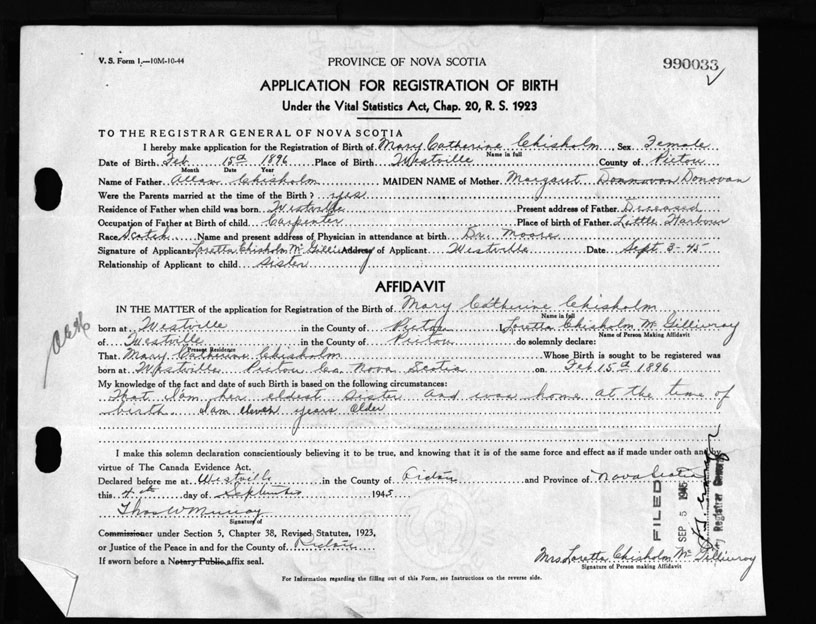 V. S. Form 1.—10M-10-44
PROVINCE OF NOVA SCOTIA
990033
APPLICATION FOR REGISTRATION OF BIRTH
Under the Vital Statistics Act, Chap. 20, R. S. 1923
TO THE REGISTRAR GENERAL OF NOVA SCOTIA
I hereby make application for the Registration of Birth of Mary Catherine Chisholm Sex Female
Name in full
Date of Birth Feb 15th 1896 Place of Birth Westville County of Pictou
Month Date Year
Name of Father Allan Chisholm MAIDEN NAME of Mother Margaret Donnovan Donovan
Were the Parents married at the time of the Birth? yes
Residence of Father when child was born Westville Present address of Father Deceased
Occupation of Father at Birth of child Carpenter Place of birth of Father Little Harbour
Race Scotch Name and present address of Physician in attendance at birth Dr. Moore
Signature of Applicant Loretta Chisholm McGillivray Address of Applicant Westville Date Sept 3-45
Relationship of Applicant to child sister
AFFIDAVIT
IN THE MATTER of the application for Registration of the Birth of Mary Catherine Chisholm
Name in full
born at Westville in the County of Pictou I, Loretta Chisholm McGillivray
Name of Person Making Affidavit
of Westville in the County of Pictou do solemnly declare:
Present Residence
That Mary Catherine Chisholm Whose Birth is sought to be registered was
born at Westville Pictou Co. Nova Scotia on Feb 15th 1896
My knowledge of the fact and date of such Birth is based on the following circumstances:
That I am her eldest sister and was home at the time of
birth. I am eleven years older
I make this solemn declaration conscientiously believing it to be true, and knowing that it is of the same force and effect as if made under oath and by
virtue of The Canada Evidence Act.
Declared before me at Westville in the County of Pictou and Province of Nova Scotia
this 4th day of September 1945
Thos W Murray
Signature of
Commissioner under Section 5, Chapter 38, Revised Statutes, 1923,
or Justice of the Peace in and for the County of Pictou
If sworn before a Notary Public, affix seal.
FILED
SEP 5 1945
Registrar General
Mrs Loretta Chisholm McGillivray
Signature of Person making Affidavit
For Information regarding the filling out of this Form, see Instructions on the reverse side.